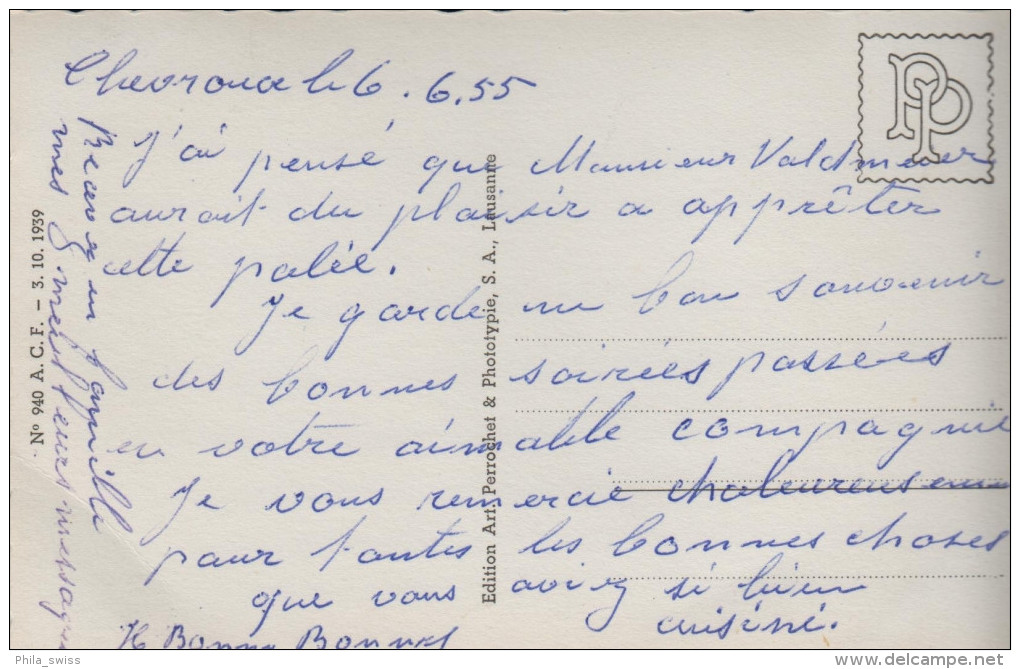 Chevroux le 6.6.55
J'ai pensé que Monsieur Valdmeier
aurait du plaisir a apprêter
cette palée.
Je garde un bon souvenir
des bonnes soirées passées
en votre aimable compagnie
Je vous remercie chaleureusement
pour toutes les bonnes choses
que vous aviez si bien
cuisiné.
H Bonny Bonnet
en famille
mes meilleurs messages
Nº 940 A. C. F. – 3. 10. 1939
Edition Art. Perrochet & Phototypie, S. A., Lausanne
PP
Phila_swiss
www.delcampe.net